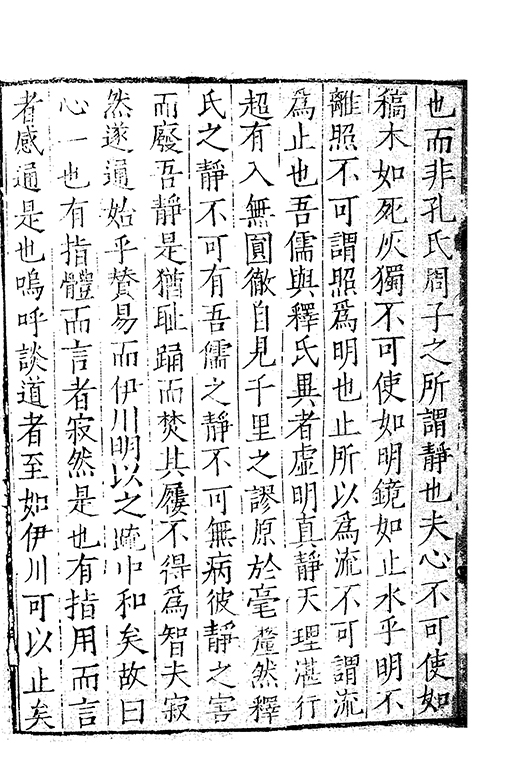 也而非孔氏周子之所謂靜也夫心不可使如
稿木如死灰獨不可使如明鏡如止水乎明不
離照不可謂照爲明也止所以爲流不可謂流
爲止也吾儒與釋氏異者虛明真靜天理湛行
超有入無圓徹自見千里之謬原於毫釐然釋
氏之靜不可有吾儒之靜不可無病彼靜之害
而廢吾靜是猶耻踊而焚其屨不得爲智夫寂
然遂通始乎賛易而伊川明以之䟽中和矣故曰
心一也有指體而言者寂然是也有指用而言
者感通是也嗚呼談道者至如伊川可以止矣